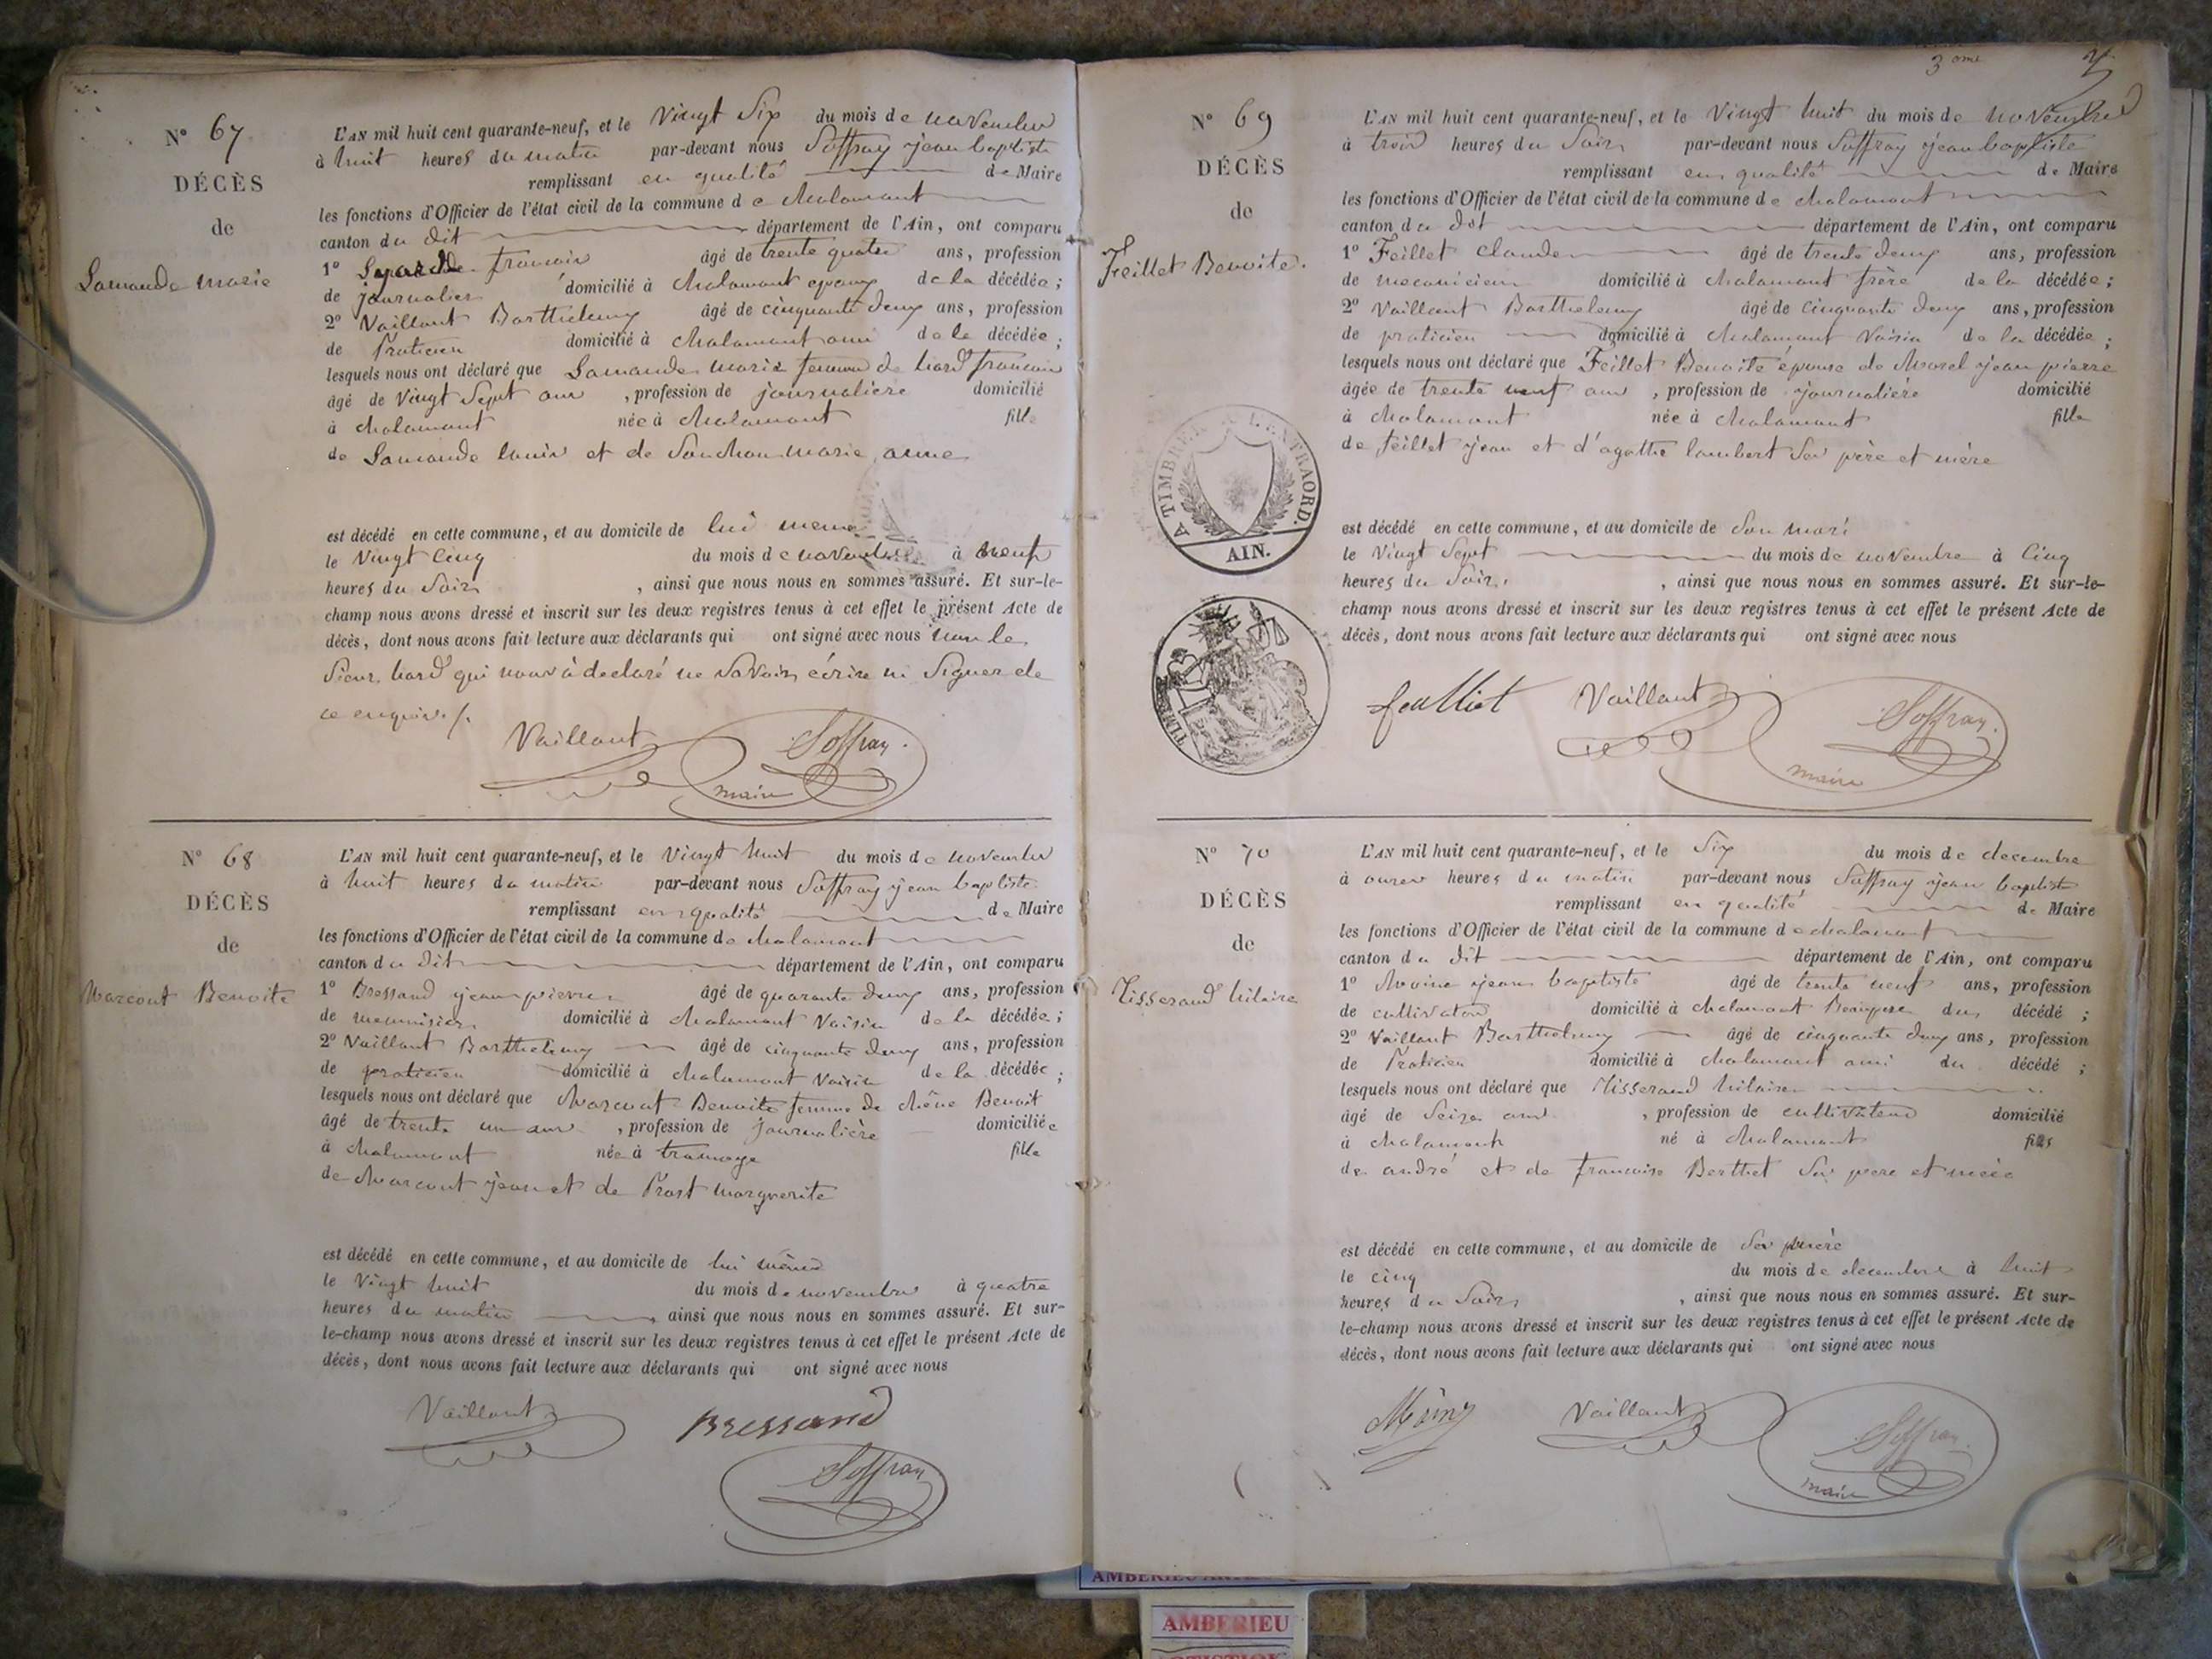 N° 67
DÉCÈS
de
Lamande marie
L'AN mil huit cent quarante-neuf, et le Vingt Six du mois de novembre
à huit heures du matin par-devant nous Soffray jean baptiste
remplissant en qualité de Maire
les fonctions d'Officier de l'état civil de la commune de chalamont
canton du dit département de l'Ain, ont comparu
1° francois âgé de trente quatre ans, profession
de journalier domicilié à chalamont epoux de la décédée;
2° Vaillant Barthelemy âgé de cinquante deux ans, profession
de Praticien domicilié à chalamont ami de la décédée;
lesquels nous ont déclaré que Lamande marie femme de francois
âgé de Vingt Sept ans, profession de journalière domicilié
à chalamont née à chalamont fille
de Lamande louis et de marie anne
est décédé en cette commune, et au domicile de lui meme
le Vingt Cinq du mois de novembre à neuf
heures du Soir, ainsi que nous nous en sommes assuré. Et sur-le-
champ nous avons dressé et inscrit sur les deux registres tenus à cet effet le présent Acte de
décès, dont nous avons fait lecture aux déclarants qui ont signé avec nous non le
Sieur qui nous à declaré ne Savoir écrire ni Signer de
ce enquis /.
Vaillant
Soffray
maire
N° 68
DÉCÈS
de
Marcout Benoite
L'AN mil huit cent quarante-neuf, et le Vingt huit du mois de novembre
à huit heures du matin par-devant nous Soffray jean baptiste
remplissant en qualité de Maire
les fonctions d'Officier de l'état civil de la commune de chalamont
canton du dit département de l'Ain, ont comparu
1° Bressand jean pierre âgé de quarante deux ans, profession
de menuisier domicilié à chalamont Voisin de la décédée;
2° Vaillant Barthelemy âgé de cinquante deux ans, profession
de praticien domicilié à chalamont Voisin de la décédée;
lesquels nous ont déclaré que Marcout Benoite femme de chêne Benoit
âgé de trente un ans, profession de journalière domiciliée
à chalamont née à tramoye fille
de Marcout jean et de Prost marguerite
est décédé en cette commune, et au domicile de lui même
le Vingt huit du mois de novembre à quatre
heures du matin, ainsi que nous nous en sommes assuré. Et sur-
le-champ nous avons dressé et inscrit sur les deux registres tenus à cet effet le présent Acte de
décès, dont nous avons fait lecture aux déclarants qui ont signé avec nous
Vaillant
Bressand
Soffray
3 eme
N° 69
DÉCÈS
de
Feillet Benoite.
L'AN mil huit cent quarante-neuf, et le Vingt huit du mois de novembre
à trois heures du Soir par-devant nous Soffray jean baptiste
remplissant en qualité de Maire
les fonctions d'Officier de l'état civil de la commune de chalamont
canton du dit département de l'Ain, ont comparu
1° Feillet claude âgé de trente deux ans, profession
de mecanicien domicilié à chalamont frère de la décédée;
2° Vaillant Barthelemy âgé de cinquante deux ans, profession
de praticien domicilié à chalamont Voisin de la décédée;
lesquels nous ont déclaré que Feillet Benoite épouse de Morel jean pierre
âgée de trente neuf ans, profession de journalière domicilié
à chalamont née à chalamont fille
de feillet jean et d'agathe lambert Ses père et mère
est décédé en cette commune, et au domicile de Son mari
le Vingt Sept du mois de novembre à Cinq
heures du Soir, ainsi que nous nous en sommes assuré. Et sur-le-
champ nous avons dressé et inscrit sur les deux registres tenus à cet effet le présent Acte de
décès, dont nous avons fait lecture aux déclarants qui ont signé avec nous
Vaillant
Soffray
maire
A TIMBRER A L'EXTRAORD.
AIN.
N° 70
DÉCÈS
de
Tisserand hilaire
L'AN mil huit cent quarante-neuf, et le Six du mois de decembre
à onze heures du matin par-devant nous Soffray jean baptiste
remplissant en qualité de Maire
les fonctions d'Officier de l'état civil de la commune de chalamont
canton du dit département de l'Ain, ont comparu
1° Moine jean baptiste âgé de trente neuf ans, profession
de cultivateur domicilié à chalamont Beaupere du décédé;
2° Vaillant Barthelemy âgé de cinquante deux ans, profession
de Praticien domicilié à chalamont ami du décédé;
lesquels nous ont déclaré que Tisserand hilaire
âgé de Seize ans, profession de cultivateur domicilié
à chalamont né à chalamont fils
de andré et de francoise Berthet Ses père et mère
est décédé en cette commune, et au domicile de
le cinq du mois de decembre à huit
heures du Soir, ainsi que nous nous en sommes assuré. Et sur-
le-champ nous avons dressé et inscrit sur les deux registres tenus à cet effet le présent Acte de
décès, dont nous avons fait lecture aux déclarants qui ont signé avec nous
Vaillant
Soffray
maire
AMBERIEU
AMBERIEU